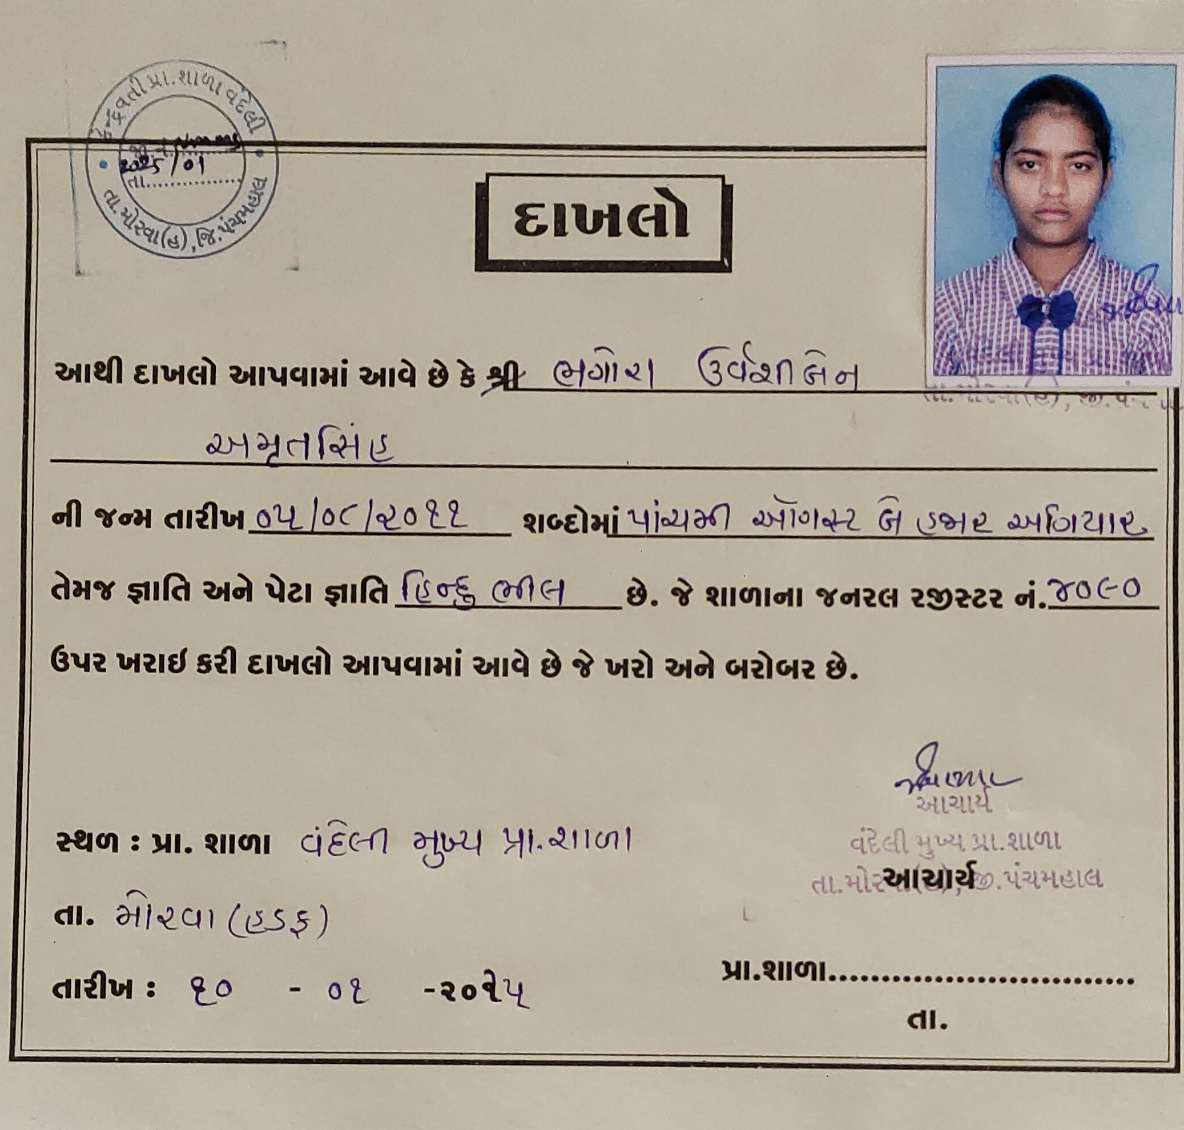 કેન્દ્રવતી પ્રા.શાળા વંદેલી
2025/01
તા...............
તા.મોરવા(હ),જિ.પંચમહાલ
દાખલો
આથી દાખલો આપવામાં આવે છે કે શ્રી ભગોરા ઉર્વશીબેન
તા.મોરવા(હ), જી.પંચ
અમૃતસિંહ
ની જન્મ તારીખ ૦૫/૦૮/૨૦૧૧ શબ્દોમાં પાંચમી ઑગસ્ટ બે હજાર અગિયાર
તેમજ જ્ઞાતિ અને પેટા જ્ઞાતિ હિન્દુ ભીલ છે. જે શાળાના જનરલ રજીસ્ટર નં. ૪૦૯૦
ઉપર ખરાઇ કરી દાખલો આપવામાં આવે છે જે ખરો અને બરોબર છે.
આચાર્ય
સ્થળ : પ્રા. શાળા વંદેલી મુખ્ય પ્રા.શાળા
વંદેલી મુખ્ય પ્રા.શાળા
તા.મોરવા(હ),જી.પંચમહાલ
આચાર્ય
તા. મોરવા (હડફ)
પ્રા.શાળા.............................
તારીખ : ૧૦ - ૦૧ -૨૦૨૫
તા.